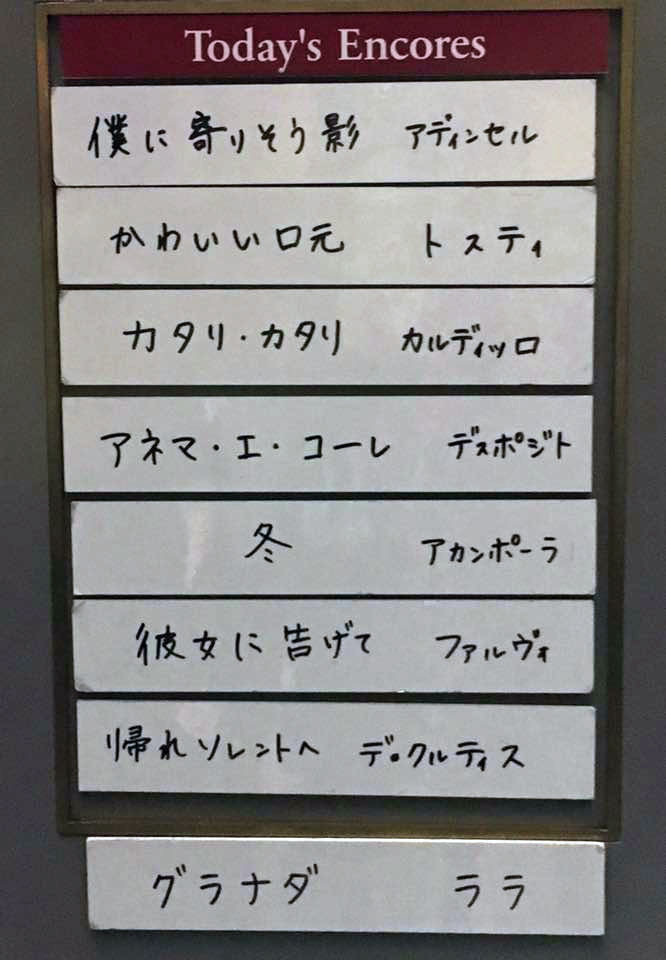 Today's Encores
僕に寄りそう影 アディンセル
かわいい口元 トスティ
カタリ・カタリ カルディッロ
アネマ・エ・コーレ デスポジト
冬 アカンポーラ
彼女に告げて ファルヴォ
帰れソレントへ デ・クルティス
グラナダ ララ